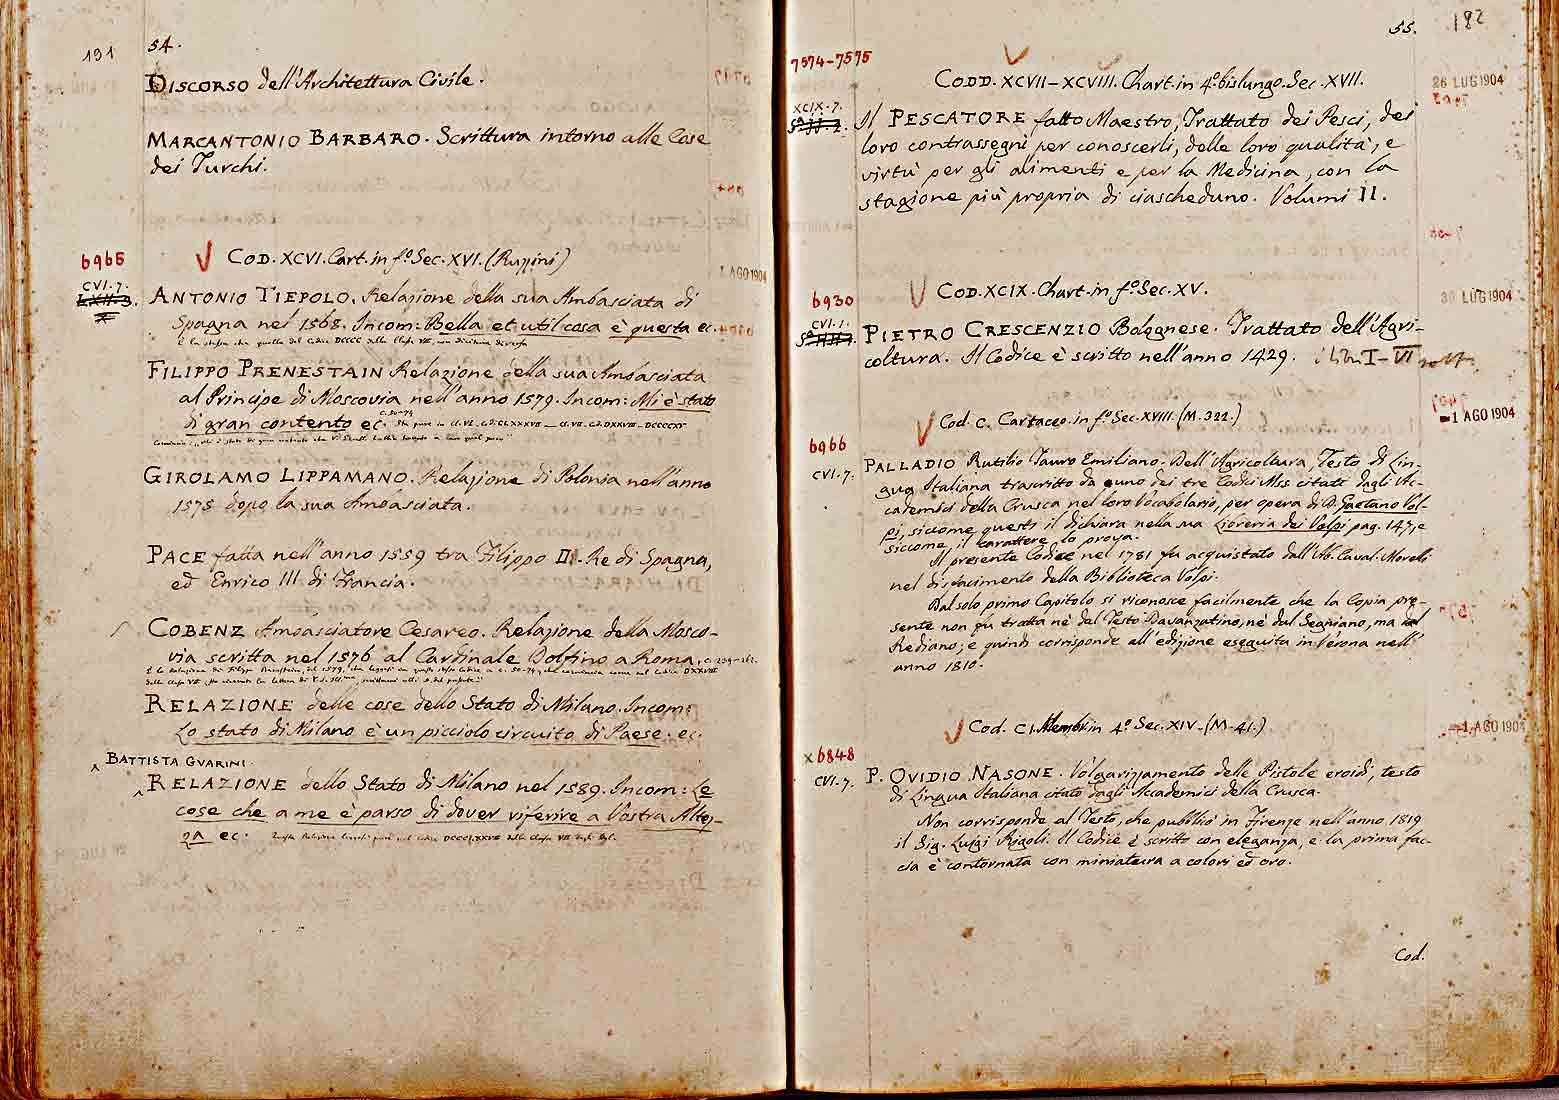 191
54.
DISCORSO dell'Architettura Civile.
MARCANTONIO BARBARO. Scrittura intorno alle Cose
dei Turchi.
6965
COD. XCVI. Cart. in f.o Sec. XVI. (Ruzini)
CVI. 7.
1 AGO 1904
ANTONIO TIEPOLO. Relazione della sua Ambasciata di
Spagna nel 1568. Incom: Bella et util cosa è questa ec.
È la stessa che quella del Codice DCCCC della Classe VII,
FILIPPO PRENESTAIN Relazione della sua Ambasciata
al Principe di Moscovia nell'anno 1579. Incom: Mi è stato
di gran contento ec.
GIROLAMO LIPPAMANO. Relazione di Polonia nell'anno
1575 dopo la sua Ambasciata.
PACE fatta nell'anno 1559 tra Filippo II. Re di Spagna,
ed Enrico III di Francia.
COBENZ Ambasciatore Cesareo. Relazione della Mosco-
via scritta nel 1576 al Cardinale Dolfino a Roma.
RELAZIONE delle cose dello Stato di Milano. Incom:
Lo stato di Milano è un picciolo circuito di Paese. ec.
BATTISTA GVARINI.
RELAZIONE dello Stato di Milano nel 1589. Incom: Le
cose che a me è parso di dover riferire a Vostra Altez-
za ec.
55.
192
7574-7575
CODD. XCVII-XCVIII. Chart. in 4.o bislungo. Sec. XVII.
26 LUG 1904
XCIX. 7.
Il PESCATORE fatto Maestro, Trattato dei Pesci, dei
loro contrassegni per conoscerli, delle loro qualità, e
virtù per gli alimenti e per la Medicina, con la
stagione più propria di ciascheduno. Volumi II.
6930
COD. XCIX. Chart. in f.o Sec. XV.
30 LUG 1904
CVI. 1.
PIETRO CRESCENZIO Bolognese. Trattato dell'Agri-
coltura. Il Codice è scritto nell'anno 1429. i libri I-VI
Cod. C. Cartaceo. in f.o Sec. XVIII. (M. 322.)
-1 AGO 1904
6966
CVI. 7.
PALLADIO Rutilio Tauro Emiliano. Dell'Agricoltura, Testo di Lin-
gua Italiana trascritto da uno dei tre Codici Mss citati dagli Ac-
cademici della Crusca nel loro Vocabolario, per opera di D. Gaetano Vol-
pi, siccome questi il dichiara nella sua Libreria dei Volpi pag. 147, e
siccome il carattere lo prova.
Il presente Codice nel 1781 fu acquistato dall'Ab. Caval. Morelli
nel disfacimento della Biblioteca Volpi.
Dal solo primo Capitolo si riconosce facilmente che la Copia pre-
sente non fu tratta nè dal Testo Davanzatino, nè dal Segniano, ma dal
Rediano; e quindi corrisponde all'edizione eseguita in Verona nell'
anno 1810.
Cod. CI. Membr. in 4.o Sec. XIV. (M. 41.)
-1 AGO 1904
x 6848
CVI. 7.
P. OVIDIO NASONE. Volgarizzamento delle Pistole eroidi, testo
di Lingua Italiana citato dagli Accademici della Crusca.
Non corrisponde al Testo, che pubblicò in Firenze nell'anno 1819
il Sig. Luigi Rigoli. Il Codice è scritto con eleganza, e la prima fac-
cia è contornata con miniatura a colori ed oro.
Cod.